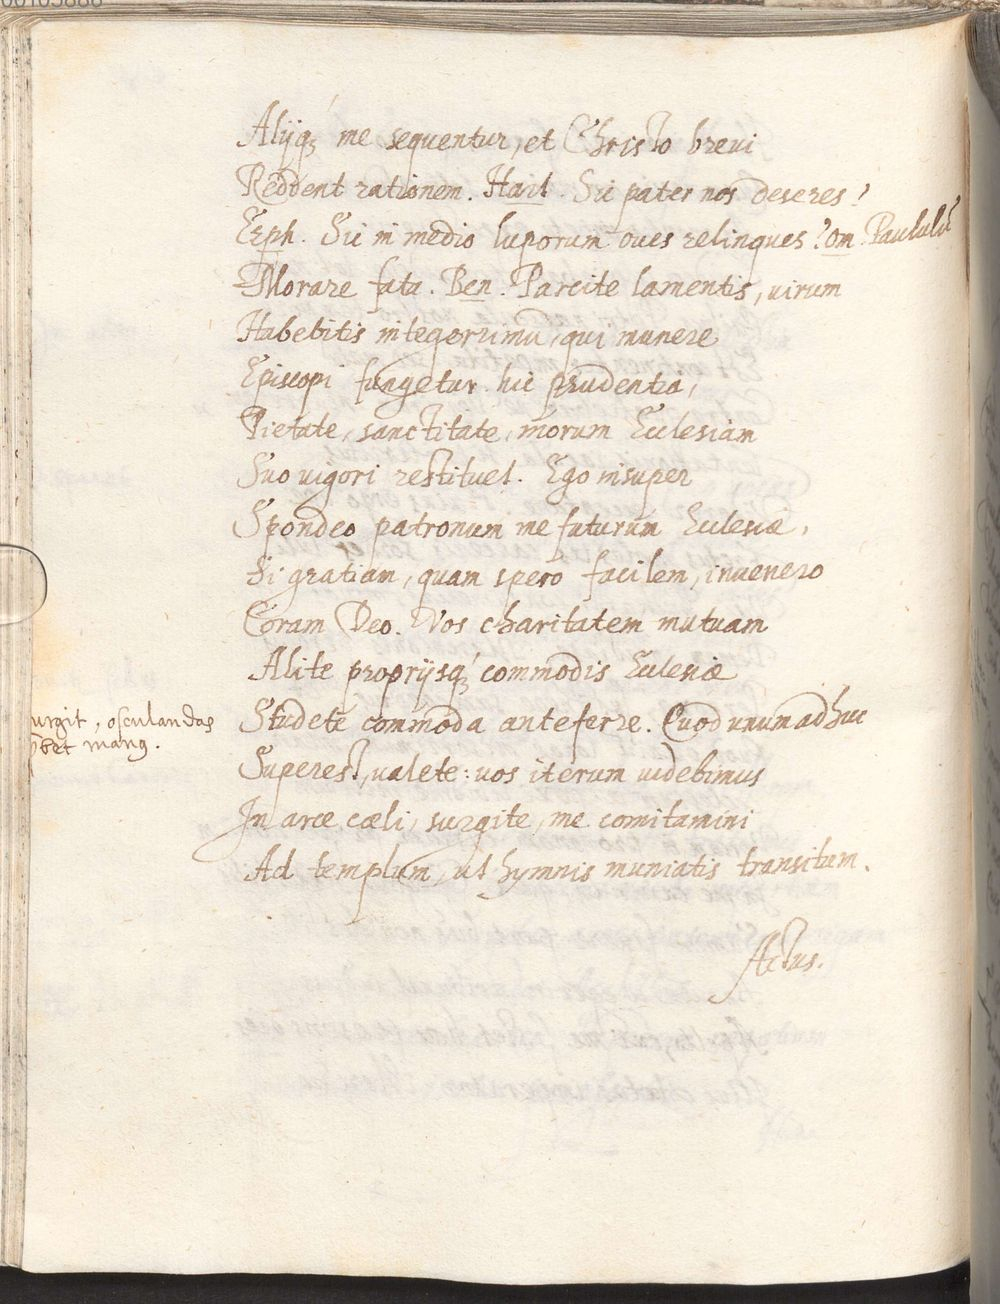 Alijq; me sequentur, et Christo brevi
Reddent rationem. Hail. Sic pater nos deseres?
Erph. Sic in medio luporum oues relinques? om. Paululū
Morare fata. Ben. Parcite lamentis, uirum
Habebitis integerrimū, qui munere
Episcopi fungetur hic prudentia,
Pietate, sanctitate, morum Ecclesiam
Suo uigori restituet. Ego insuper
Spondeo patronum me futurum Ecclesiæ,
Si gratiam, quam spero facilem, inuenero
Coram Deo. Vos charitatem mutuam
Alite proprijsq; commodis Ecclesiæ
urgit, osculandas
bet manq.
Studete commoda anteferre. Quod unum adhuc
Superest, ualete: uos iterum uidebimus
In arce cæli, surgite, me comitamini
Ad templum, ut hymnis muniatis transitum.
Actus.